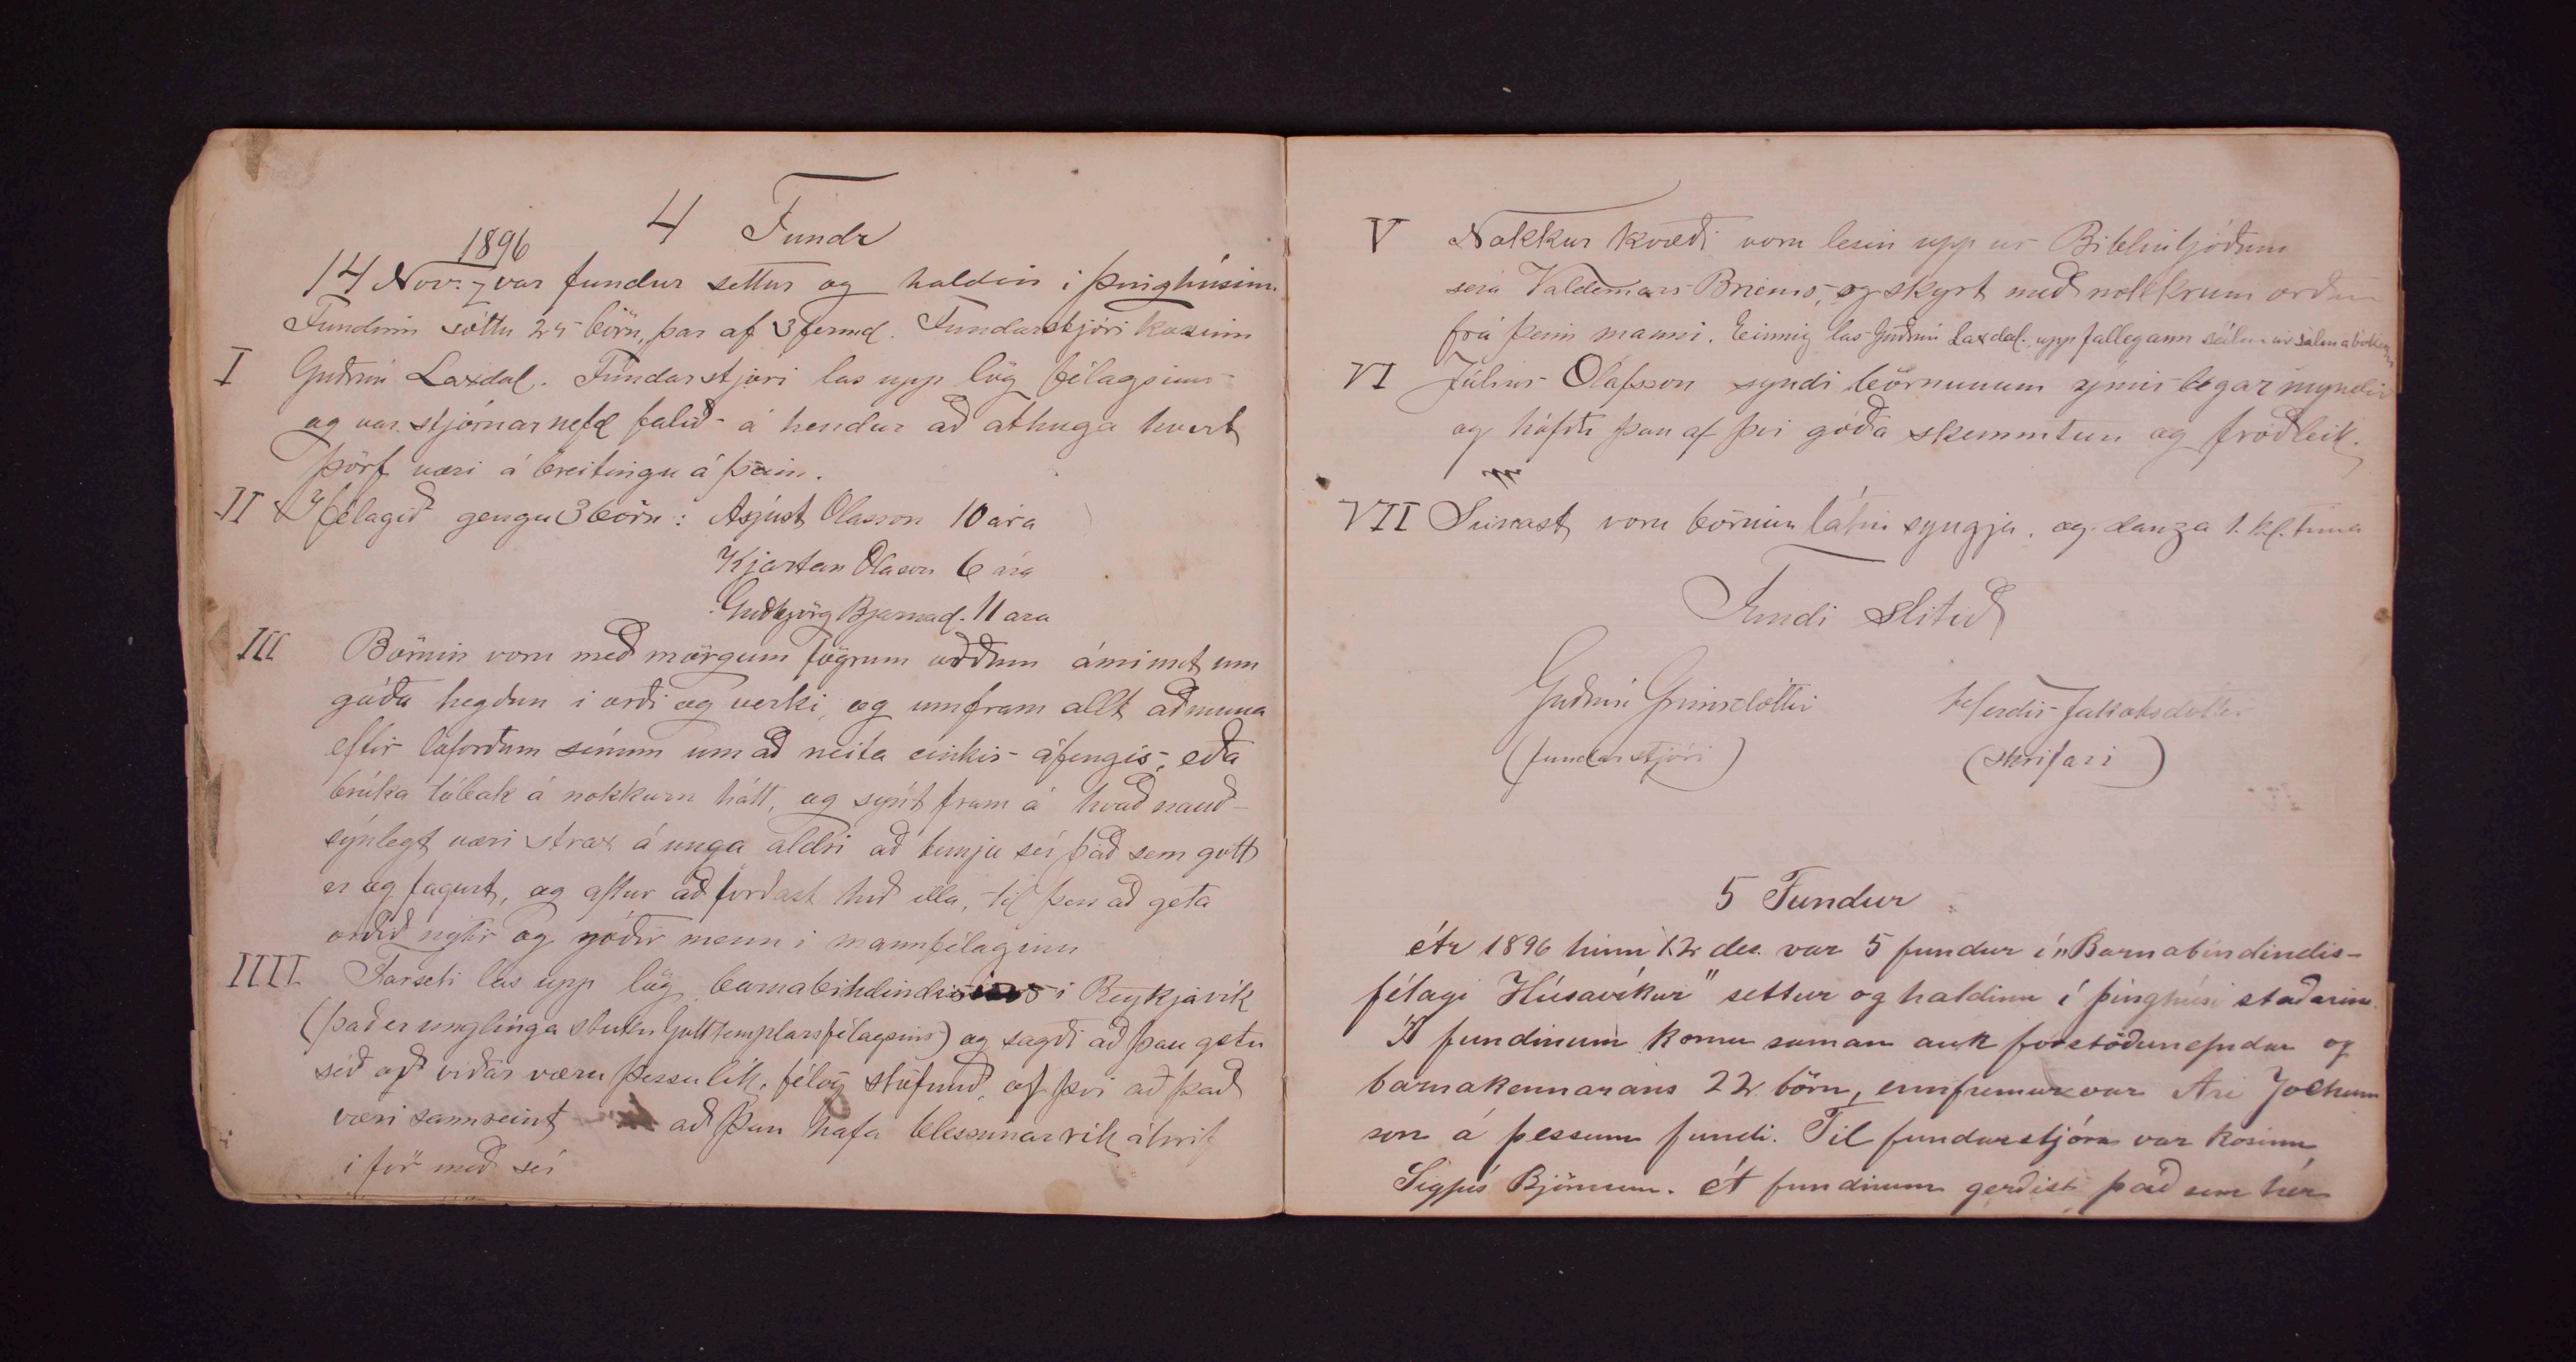 4 Fundr
1896
14 Nov. var fundur settur og haldin i þinghúsinu
Fundinn sóttu 25 börn, þar af 3 fermd. Fundarstjóri kosinn
I Guðrún Laxdal. Fundarstjóri las upp lög félagsins
og var stjórnarnefd falið á hendur að athuga hvert
þörf væri á breitingu á þeim.
II Í félagið gengu 3 börn: Ágúst Olason 10 ára
Kjartan Olason 6 ára
Guðbjörg Bjarnad. 11 ara
III Börnin voru með mörgum fögrum orðum ámint um
góða hegðun i orði og verki, og umfram allt að muna
eftir loforðum sínum um að neita einkis áfengis, eða
brúka tóbak á nokkurn hátt, og synt fram á hvað nauð-
synlegt væri strax á unga aldri að temja sér það sem gott
er og fagurt, og aftur að forðast hið illa, til þess að geta
orðið nýtir og góðir menn i mannfélaginu
IIII Forseti las upp lög barnabindindisins i Reykjavík
(það er unglinga stuku Gottemplarsfélagsins) og sagði að þau getu
séð að viðar væru þessu lík félög stofnuð, af þvi að það
væri sannreint að þau hafa blessunarrík áhrif
i för með sér
V Nokkur kvæði voru lesin upp ur Bibliuljóðum
sera Valdemars Briems, og skyrt með nokkrum orðum
frá þeim manni. Einnig las Guðrún Laxdal. upp fallegann sálm úr sálmabókinni
VI Júlíus Ólafsson syndi börnunum ýmislegar myndir
og höfðu þau af þvi góða skemmtun og fróðleik.
VII Siðast voru börnin látin syngja. og danza 1. kl. tima
Fundi slitið
Guðrún Grimsdóttir Herdís Jakobsdóttir
(fundarstjóri) (skrifari)
5 Fundur
Ár 1896 hinn 12 des. var 5 fundur í "Barnabindindis-
félagi Húsavíkur" settur og haldinn í þinghúsi staðarins.
Á fundinum komu saman auk forstöðunefndar og
barnakennarans 22 börn, ennfremur var Ari Jochum
son á þessum fundi. Til fundarstjóra var kosinn
Sigfús Björnsson. Á fundinum gerðist það sem hér